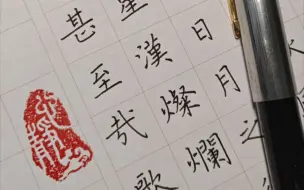 日月之
星漢燦爛
甚至哉歌